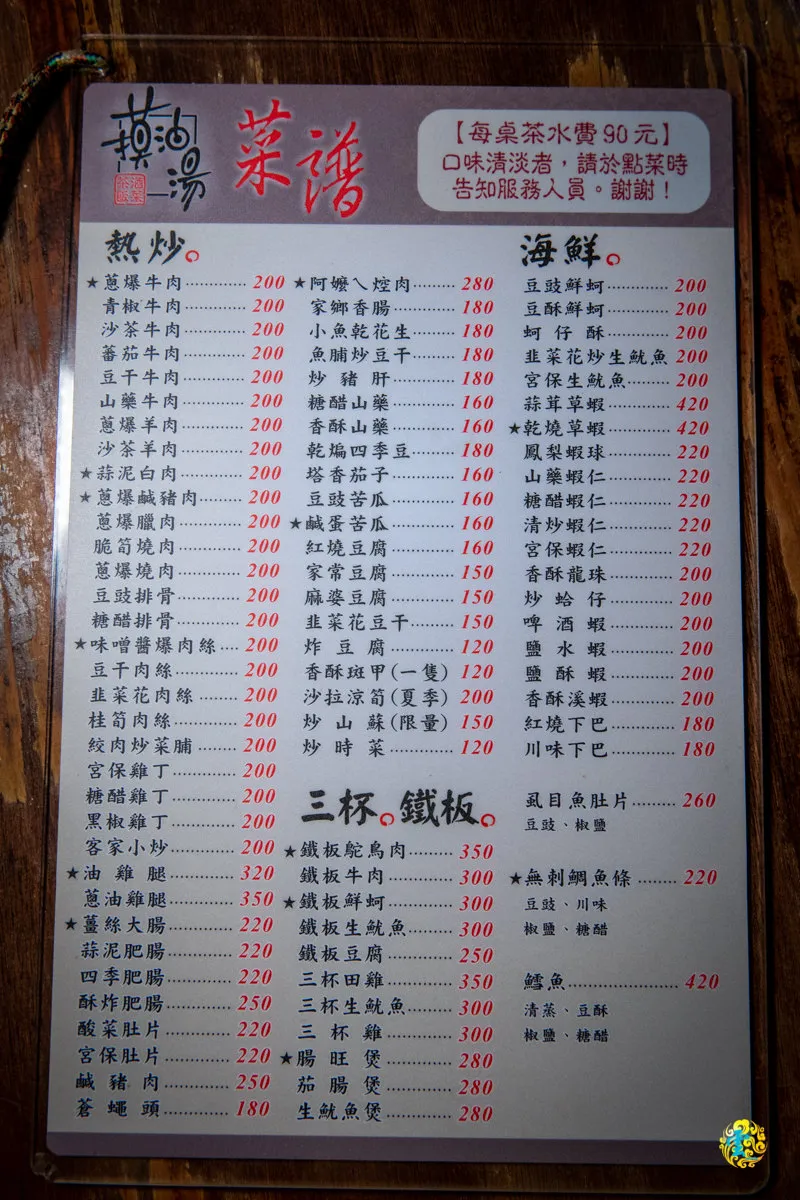 摸油湯
菜譜
【每桌茶水費90元】
口味清淡者，請於點菜時
告知服務人員。謝謝！
熱炒
★蔥爆牛肉 200
青椒牛肉 200
沙茶牛肉 200
蕃茄牛肉 200
豆干牛肉 200
山藥牛肉 200
蔥爆羊肉 200
沙茶羊肉 200
★蒜泥白肉 200
★蔥爆鹹豬肉 200
蔥爆臘肉 200
脆筍燒肉 200
蔥爆燒肉 200
豆豉排骨 200
糖醋排骨 200
★味噌醬爆肉絲 200
豆干肉絲 200
韭菜花肉絲 200
桂筍肉絲 200
絞肉炒菜脯 200
宮保雞丁 200
糖醋雞丁 200
黑椒雞丁 200
客家小炒 200
★油雞腿 320
蔥油雞腿 350
★薑絲大腸 220
蒜泥肥腸 220
四季肥腸 220
酥炸肥腸 250
酸菜肚片 220
宮保肚片 220
鹹豬肉 250
蒼蠅頭 180
★阿嬤ㄟ焢肉 280
家鄉香腸 180
小魚乾花生 180
魚脯炒豆干 180
炒豬肝 180
糖醋山藥 160
香酥山藥 160
乾煸四季豆 180
塔香茄子 160
豆豉苦瓜 160
★鹹蛋苦瓜 160
紅燒豆腐 160
家常豆腐 150
麻婆豆腐 150
韭菜花豆干 150
炸豆腐 120
香酥斑甲(一隻) 120
沙拉涼筍(夏季) 200
炒山蘇(限量) 150
炒時菜 120
三杯 鐵板
★鐵板鴕鳥肉 350
鐵板牛肉 300
★鐵板鮮蚵 300
鐵板生魷魚 300
鐵板豆腐 250
三杯田雞 350
三杯生魷魚 300
三杯雞 300
★腸旺煲 280
茄腸煲 280
生魷魚煲 280
海鮮
豆豉鮮蚵 200
豆酥鮮蚵 200
蚵仔酥 200
韭菜花炒生魷魚 200
宮保生魷魚 200
蒜茸草蝦 420
★乾燒草蝦 420
鳳梨蝦球 220
山藥蝦仁 220
糖醋蝦仁 220
清炒蝦仁 220
宮保蝦仁 220
香酥龍珠 200
炒蛤仔 200
啤酒蝦 200
鹽水蝦 200
鹽酥蝦 200
香酥溪蝦 200
紅燒下巴 180
川味下巴 180
虱目魚肚片 260
豆豉、椒鹽
★無刺鯛魚條 220
豆豉、川味
椒鹽、糖醋
鱈魚 420
清蒸、豆酥
椒鹽、糖醋